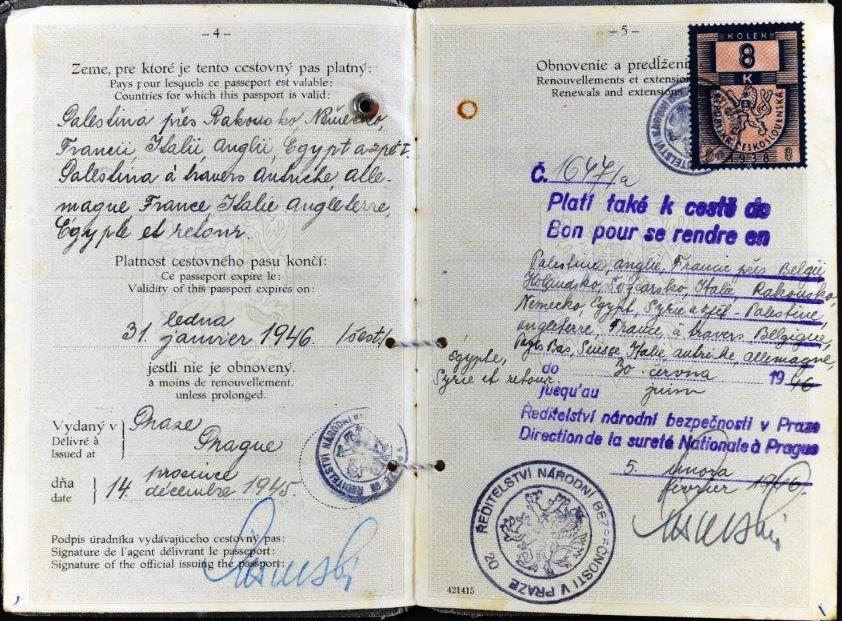 – 4 –
Zeme, pre ktoré je tento cestovný pas platný:
Pays pour lesquels ce passeport est valable:
Countries for which this passport is valid:
Palestina přes Rakousko, Německo,
Francii, Italii, Anglii, Egypt a zpět.
Palestina à travers Autriche, Alle-
magne France, Italie Angleterre,
Egypte et retour.
Platnost cestovného pasu končí:
Ce passeport expire le:
Validity of this passport expires on:
31. ledna
janvier 1946. /šest/
jestli nie je obnovený.
à moins de renouvellement.
unless prolonged.
Vydaný v
Délivré à
Issued at
Praze
Prague
dňa
date
14. prosince
décembre 1945.
Podpis úradníka vydávajúceho cestovný pas:
Signature de l'agent délivrant le passeport:
Signature of the official issuing the passport:
– 5 –
Obnovenie a predĺženi
Renouvellements et extension
Renewals and extensions
KOLEK
8
K
REPUBLIKA ČESKOSLOVENSKÁ
8 1938 8
Č. 1647/a
Platí také k cestě do
Bon pour se rendre en
Palestina, Anglie, Francie přes Belgii
Holandsko, Švýcarsko, Italii, Rakousko,
Německo, Egypt, Syrie a zpět - Palestine,
Angleterre, France, à travers, Belgique,
Pays Bas, Suisse, Italie, Autriche, Allemagne,
Égypte,
Syrie et retour.
do 30. června 1946
jusqu'au juin
Ředitelství národní bezpečnosti v Praze
Direction de la sureté Nationale à Prague
5. února
février 1946.
ŘEDITELSTVÍ NÁRODNÍ BEZPEČNOSTI V PRAZE
20
421415